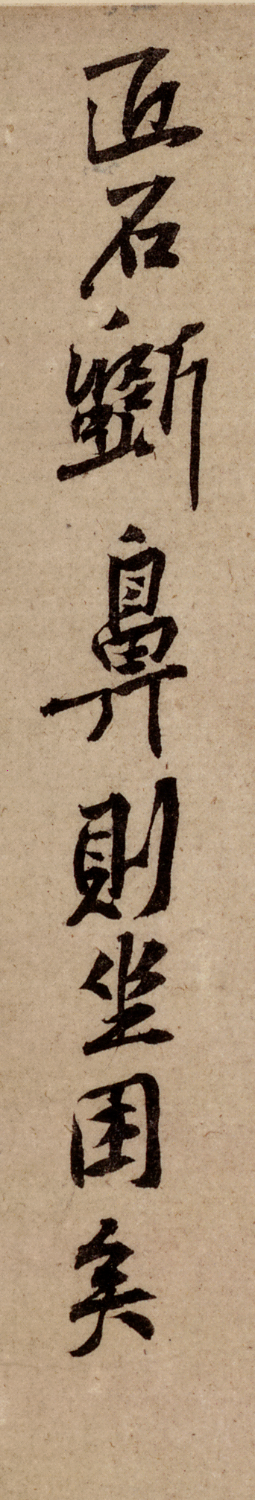 匠石斲鼻則坐困矣